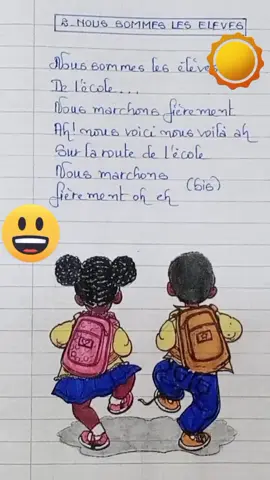 2_NOUS SOMMES LES ELEVES
Nous sommes les élèves
De l'école....
Nous marchons fièrement
Ah! nous voici nous voilà ah
Sur la route de l'école
Nous marchons
fièrement oh eh (bis)